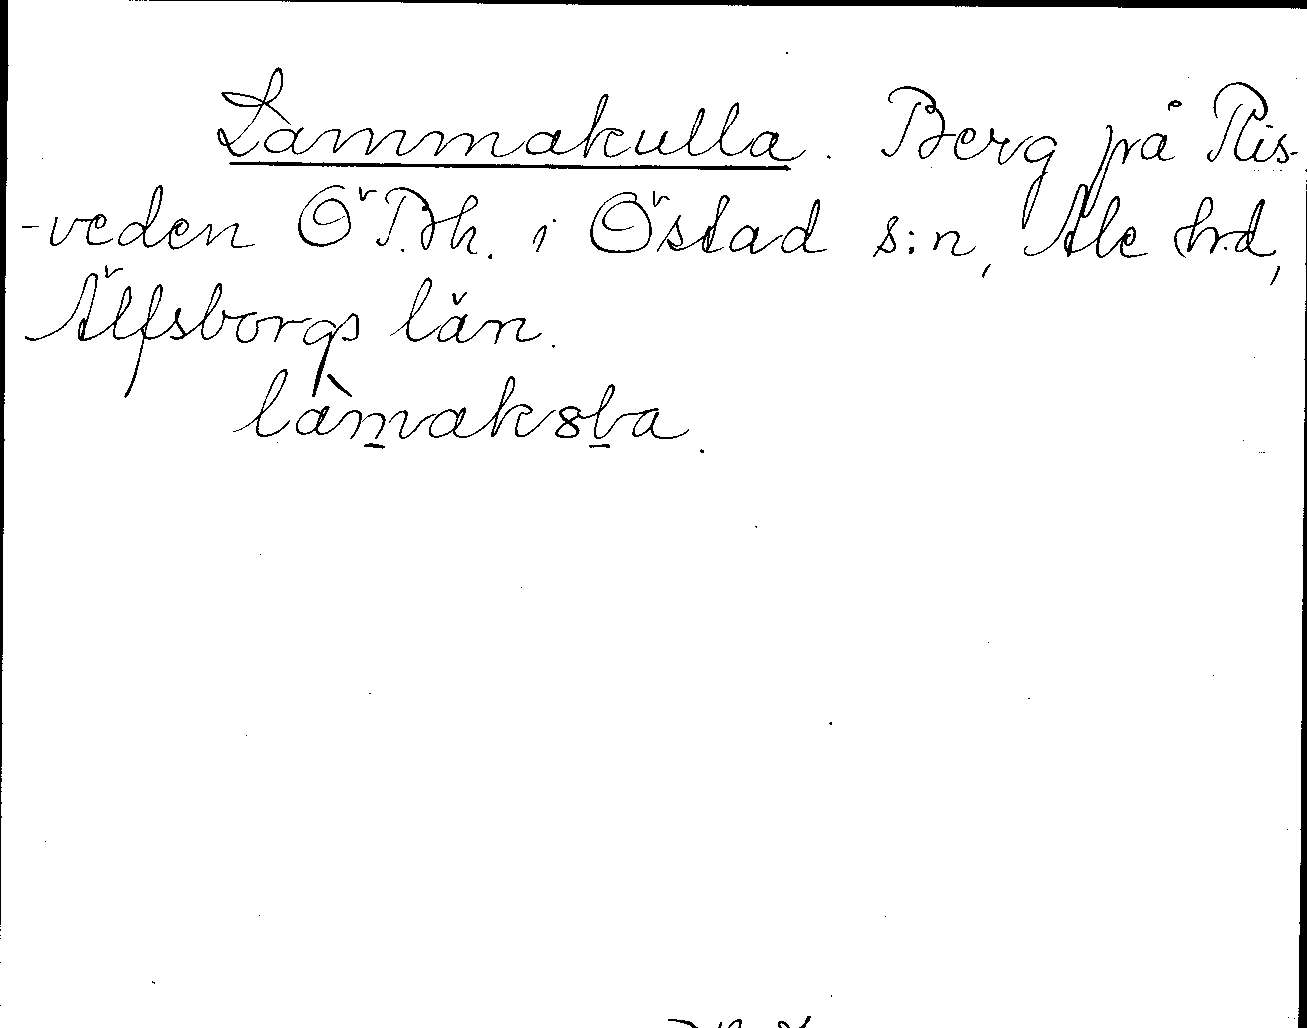 Lammakulla. Berg på Ris-
-veden Ö Bh. i Östad s:n, Ale hrd,
Älfsborgs län.
làm̲aks̲ḇa.